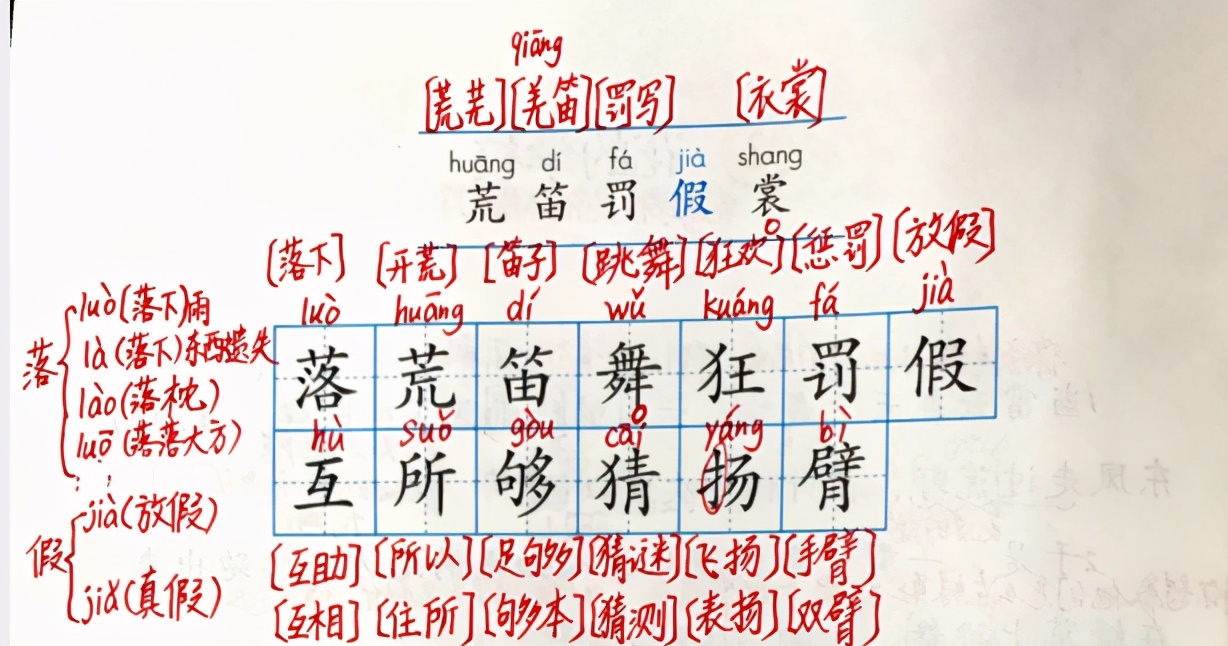 qiāng
[荒芜][羌笛][罚写] [衣裳]
huāng dí fá jià shang
荒 笛 罚 假 裳
[落下] [开荒] [笛子] [跳舞] [狂欢] [惩罚] [放假]
luò huāng dí wǔ kuáng fá jià
落 荒 笛 舞 狂 罚 假
hù suǒ gòu cāi yáng bì
互 所 够 猜 扬 臂
[互助] [所以] [足够] [猜谜] [飞扬] [手臂]
[互相] [住所] [够本] [猜测] [表扬] [双臂]
落
luò(落下)雨
là(落下)东西遗失
lào(落枕)
luō(落落大方)
假
jià(放假)
jiǎ(真假)